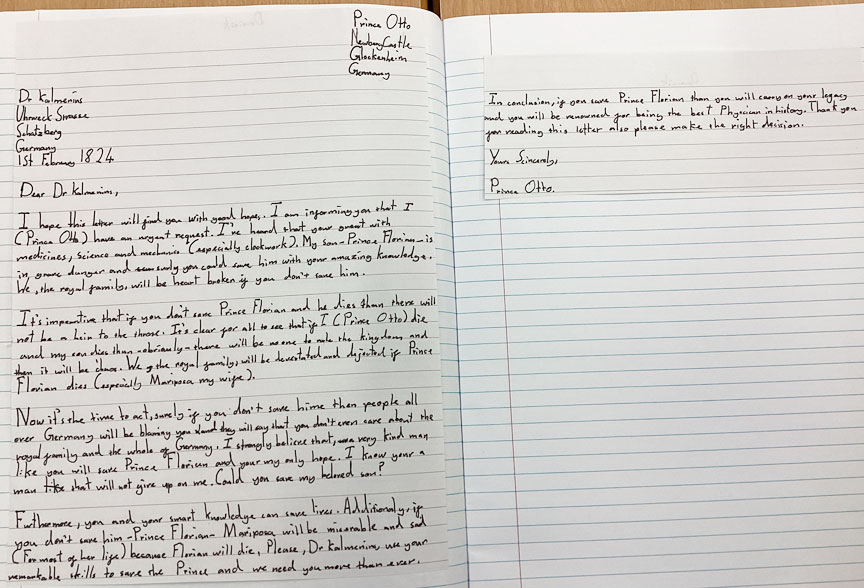 Prince Otto
Newbury Castle
Glockenheim
Germany
Dr Kalmenius
Uhrweck Strasse
Schatzberg
Germany
1st February 1824
Dear Dr Kalmenius,
I hope this letter will find you with good hope. I am informing you that I
(Prince Otto) have an urgent request. I've heard that your great with
medicines, science and mechanics (especially clockwork). My son-Prince Florian-is
in grave danger and surely you could save him with your amazing knowledge.
We, the royal family, will be heart broken if you don't save him.
It's imperative that if you don't save Prince Florian and he dies than there will
not be a heir to the throne. It's clear for all to see that if I (Prince Otto) die
and my son dies than-obviously-there will be no one to rule the kingdom and
then it will be chaos. We, the royal family, will be devastated and dejected if Prince
Florian dies (especially Mariposa my wife).
Now it's the time to act, surely if you don't save hime then people all
over Germany will be blaming you and they will say that you don't even care about the
royal family and the whole of Germany. I strongly believe that, a very kind man
like you will save Prince Florian and your my only hope. I know your a
man like that will not give up on me. Could you save my beloved son?
Furthermore, you and your smart knowledge can save lives. Additionaly, if
you don't save him-Prince Florian- Mariposa will be miserable and sad
(For most of her life) because Florian will die, Please, Dr Kalmenius, use your
remarkable skills to save the Prince and we need you more than ever.
In conclusion, if you save Prince Florian than you will carry on your legacy
and you will be renowned for being the best Physician in history. Thank you
for reading this letter also please make the right decision.
Yours Scincerely,
Prince Otto.